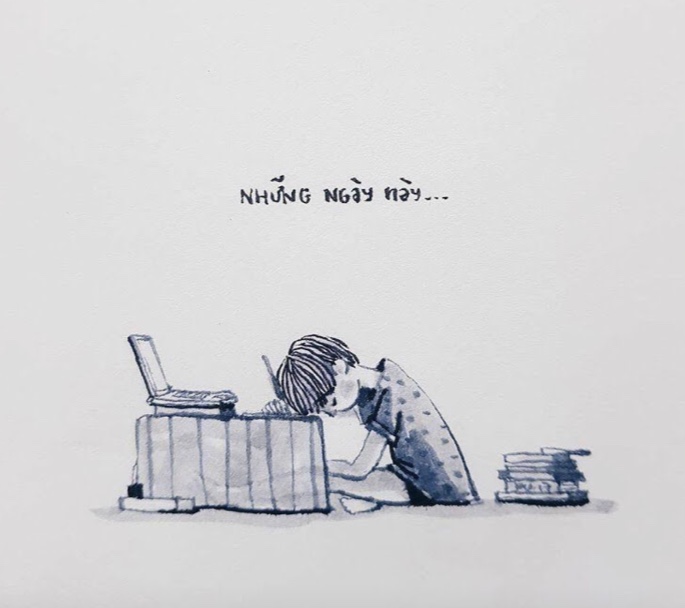 NHỮNG NGÀY NÀY...